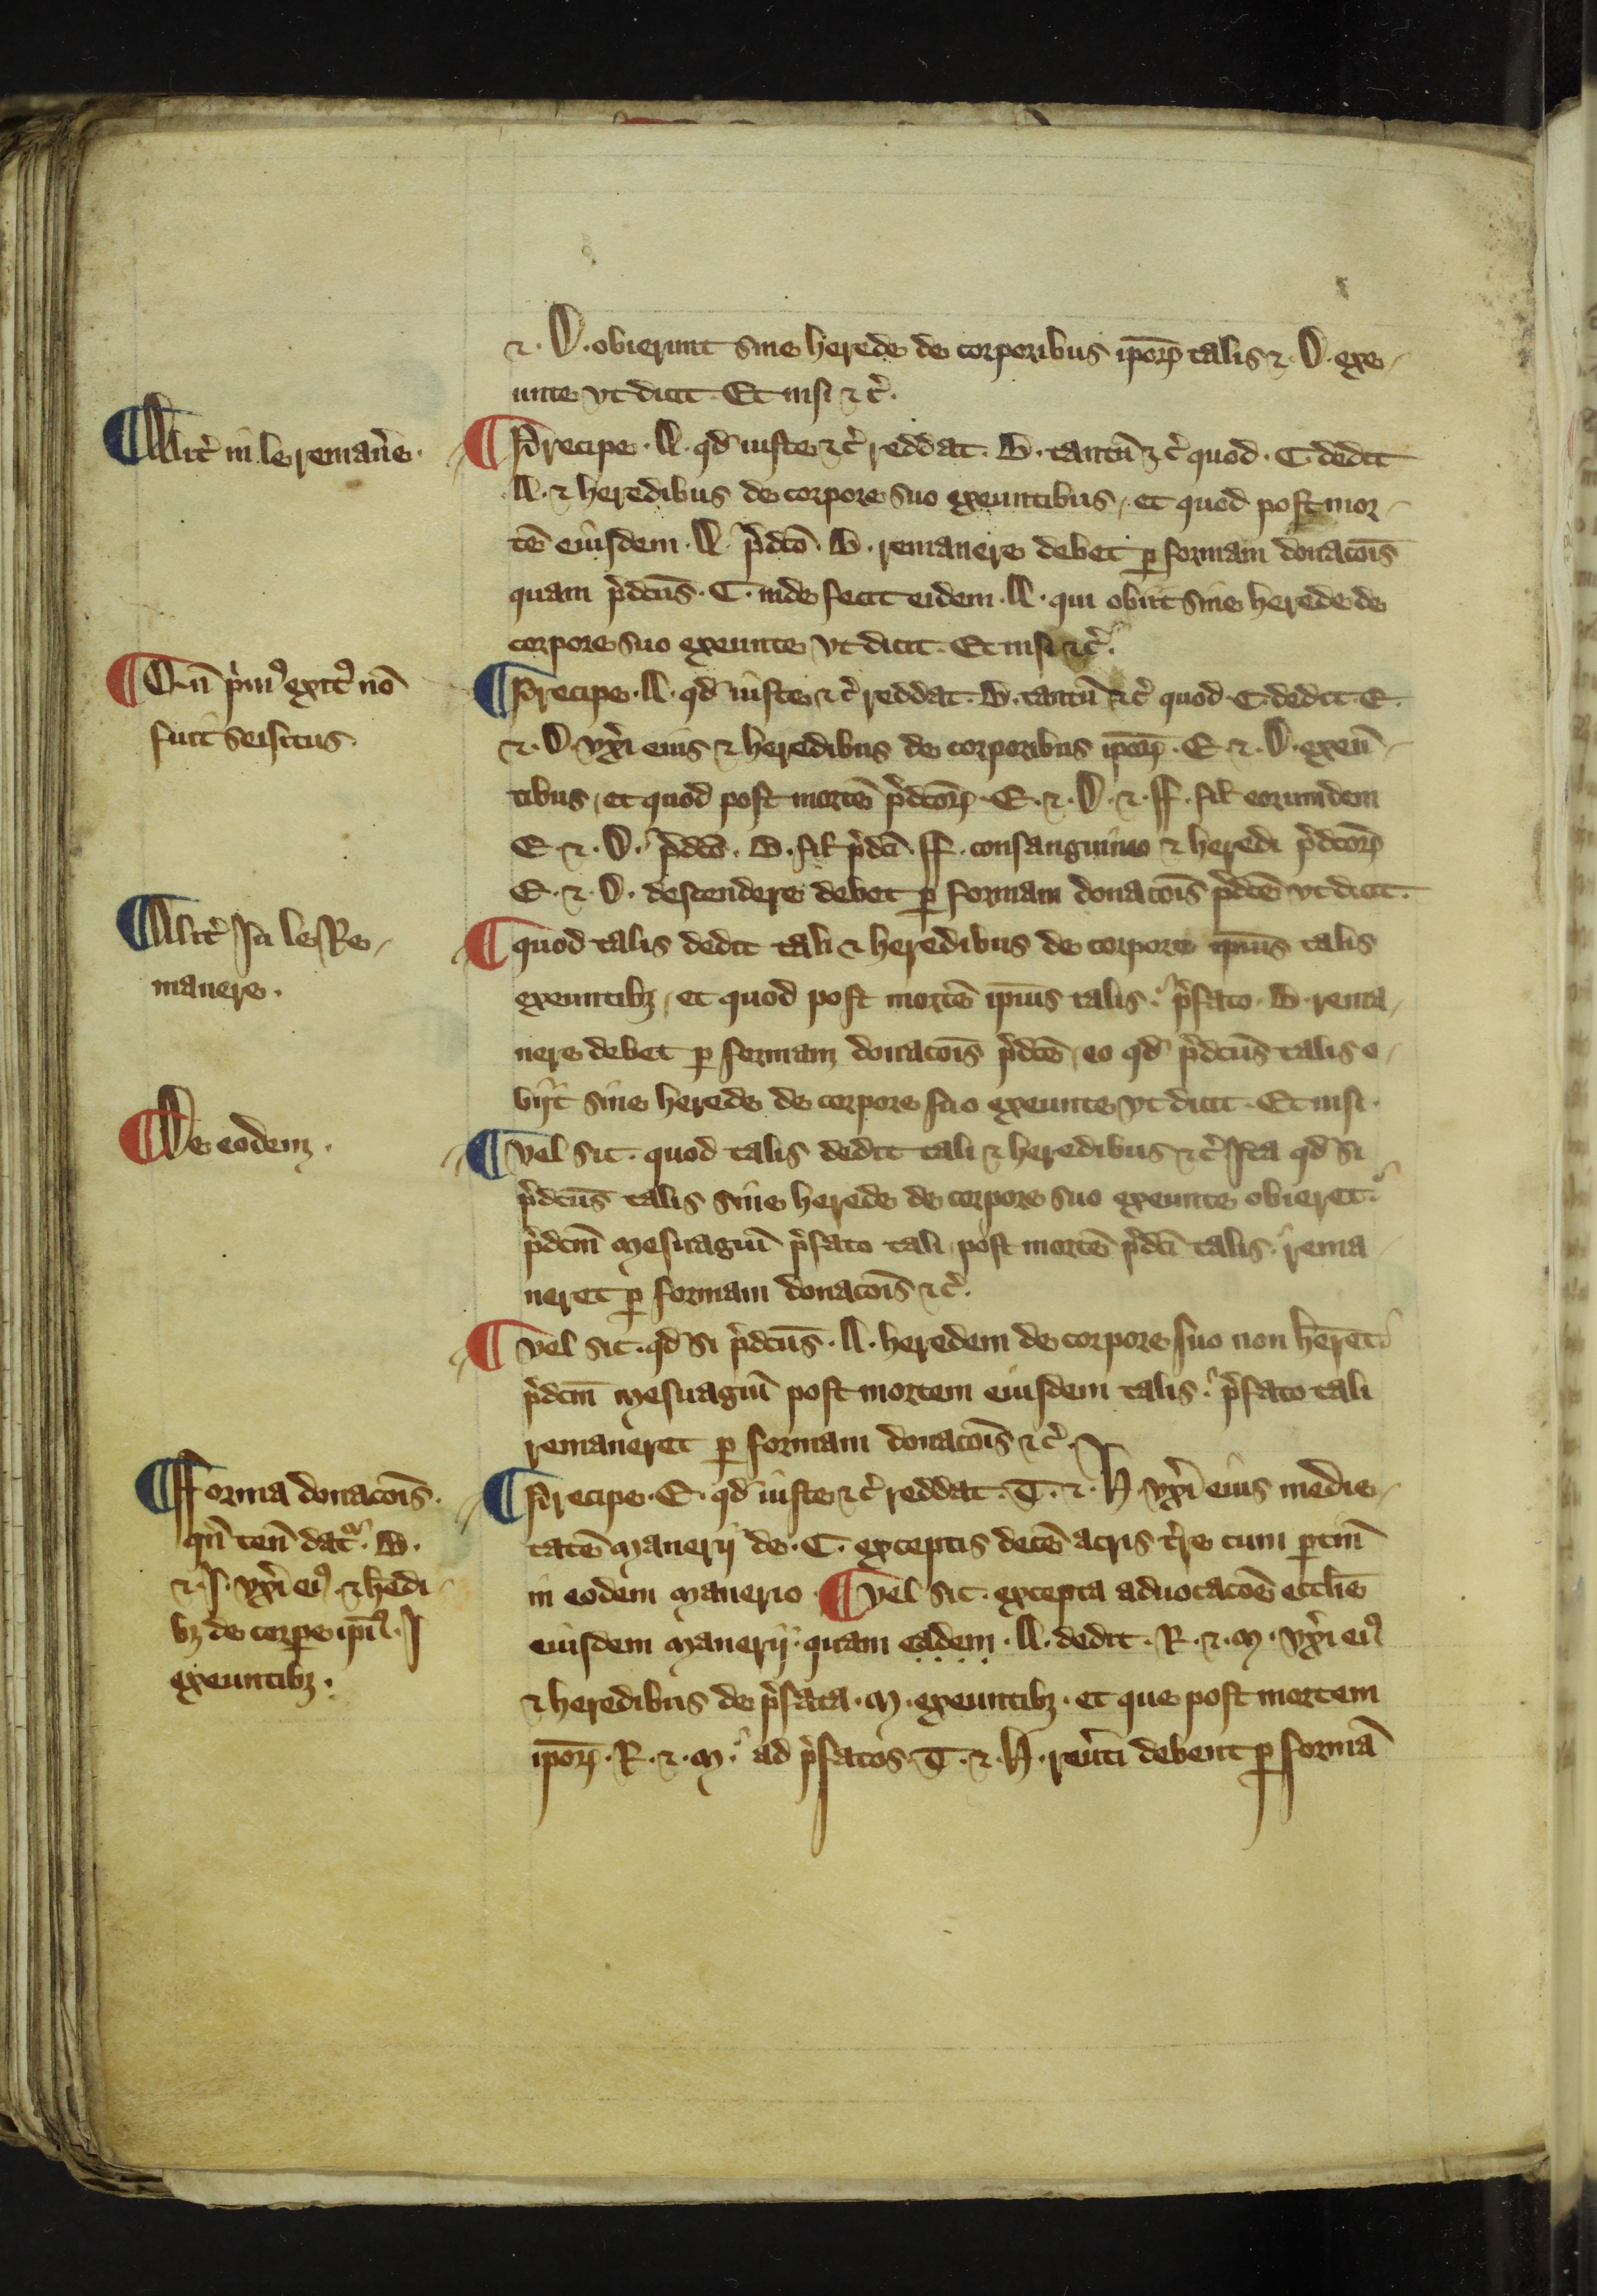 ⁊ .D. obierunt sine herede de corporibus ipoꝝ talis ⁊ .D. exe-
unte vt dicit. Et nisi ⁊ c̉.
¶ Alit̉ in le remañe.
¶ Precipe .A. qd̛ iuste ⁊ c̉ reddat .B. tantū ⁊ c̉ quod .C. dedit
.A. ⁊ heredibus de corpore suo exeuntibus, et quod post mor-
tē eiusdem .A. p̉dc̄o .B. remanere debet ꝑ formam donac̄ois
quam p̉dc̄us .C. inde fecit eidem .A. qui obiit sine herede de
corpore suo exeunte vt dicit. Et nisi ⁊ c̉.
¶ Qn̄ p̉mꝰ exitꝰ nō
fuit seisitus.
¶ Precipe .A. qd̛ iuste ⁊ c̉ reddat .B. tantū ⁊ c̉ quod .C. dedit .E.
⁊ .D. vx̉i eius ⁊ heredibus de corporibus ipoꝝ .E. ⁊ .D. exeū-
tibus, et quod post mortē p̉dc̄oꝝ .E. ⁊ .D. ⁊ .ff. fil̄ eorumdem
E. ⁊ .D. p̉dc̄o .B. fil̄ p̉dc̄i .ff. consanguineo ⁊ heredi p̉dc̄oꝝ
E. ⁊ .D. descendere debet ꝑ formam donac̄ois p̉dc̄e vt dicit.
¶ Alit̉ In le Re-
manere.
¶ quod talis dedit tali ⁊ heredibus de corpore ipīus talis
exeuntibꝫ, et quod post mortē ipīus talis. p̉fato .B. rema-
nere debet ꝑ formam donac̄ois p̉dc̄e, eo qd̛ p̉dc̄us talis o-
biit sine herede de corpore suo exeunte vt dicit. Et nisi.
¶ De eodem.
¶ vel sic. quod talis dedit tali ⁊ heredibus ⁊ c̉ Ita qd̛ si
p̉dc̄us talis sine herede de corpore suo exeunte obieret.
p̉dc̄m mesuagiū p̉fato tali post mortē p̉dc̄i talis. rema-
neret ꝑ formam donac̄ois ⁊ c̉.
¶ vel sic. qd̛ si p̉dc̄us .A. heredem de corpore suo non h̄eret.
p̉dc̄m mesuagiū post mortem eiusdem talis. p̉fato tali
remaneret ꝑ formam donac̄ois ⁊ c̉.
¶ Forma donac̄ois.
qn̄ ten̄ dat̉. B.
⁊ .J. vx̉i eiꝰ ⁊ h̄edi-
bꝫ de corꝑe ipīꝰ .J
exeuntibꝫ.
¶ Precipe .E. qd̛ iuste ⁊ c̉ reddat .T. ⁊ .H. vx̉i eius medie-
tatē manerij de .C. exceptis decē acris t̉re cum ꝑtin̄
in eodem manerio. ¶ vel sic. excepta aduocac̄oē eccl̄ie
eiusdem manerij. quam eadem .A. dedit .R. ⁊ .M. vx̉i eiꝰ
⁊ heredibus de p̉fata .M. exeuntibꝫ. et que post mortem
ipoꝝ .R. ⁊ .M. ad p̉fatos .T. ⁊ .H. reủti debent ꝑ formā